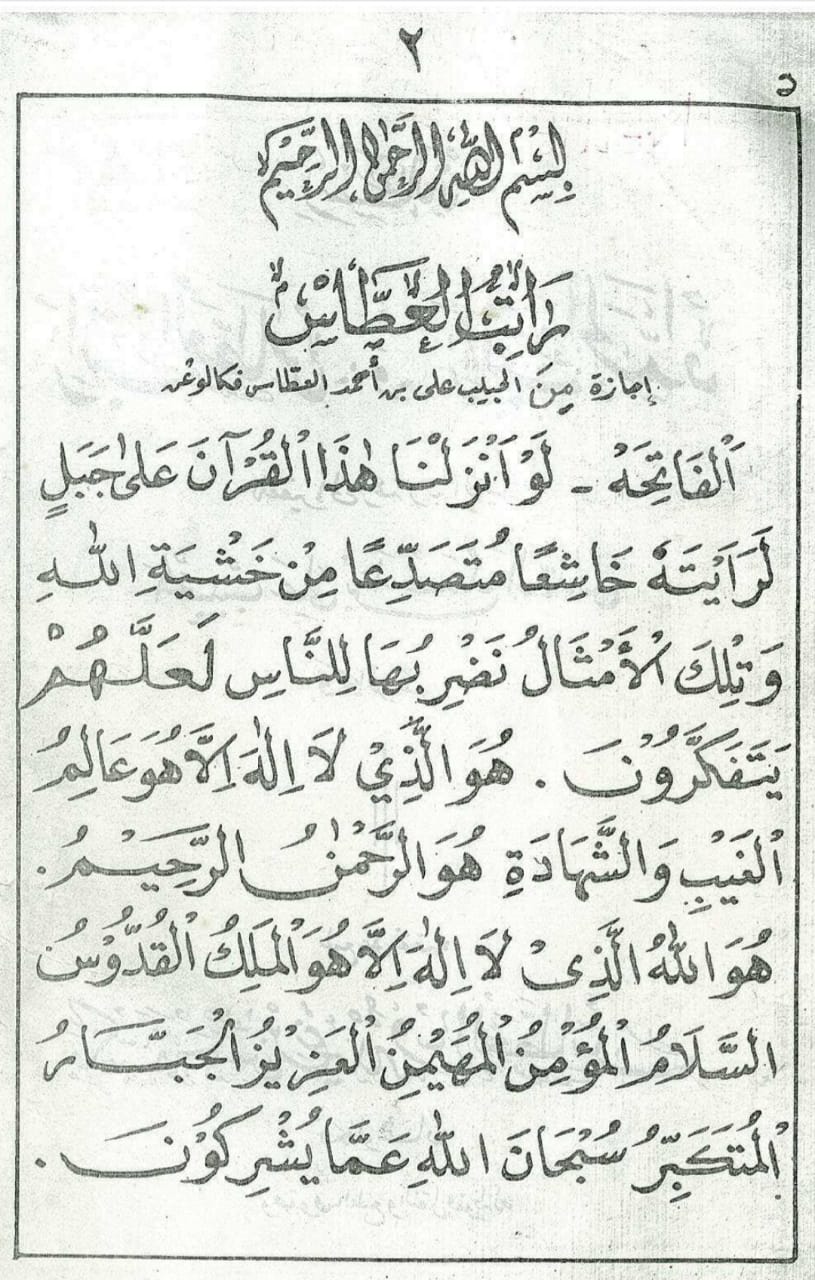 ٢
بِسْمِ اللهِ الرَّحْمٰنِ الرَّحِيْمِ
رَاتِبُ الْعَطَّاسِ
إجازة مِنَ الحبيب على بن أحمد العطاس فكالوعن
اَلْفَاتِحَهْ - لَوْ اَنْزَلْنَا هٰذَا الْقُرْآنَ عَلٰى جَبَلٍ
لَرَاَيْتَهٗ خَاشِعًا مُتَصَدِّعًا مِنْ خَشْيَةِ اللهِ
وَتِلْكَ الْأَمْثَالُ نَضْرِبُهَا لِلنَّاسِ لَعَلَّهُمْ
يَتَفَكَّرُوْنَ . هُوَ الَّذِيْ لَا اِلٰهَ اِلَّا هُوَ عَالِمُ
الْغَيْبِ وَالشَّهَادَةِ هُوَ الرَّحْمٰنُ الرَّحِيْمُ .
هُوَ اللهُ الَّذِىْ لَا اِلٰهَ اِلَّا هُوَ الْمَلِكُ الْقُدُّوْسُ
السَّلَامُ الْمُؤْمِنُ الْمُهَيْمِنُ الْعَزِيْزُ الْجَبَّارُ
الْمُتَكَبِّرُ سُبْحَانَ اللهِ عَمَّا يُشْرِكُوْنَ .